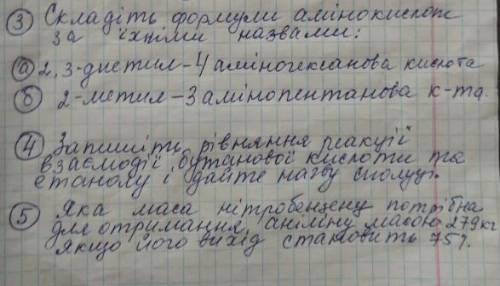 ③ Складіть формули амінокислот
за їхніми назвами:
а) 2,3-диетил-4 аміногексанова кислота
б) 2-метил-3амінопентанова к-та.
④ Запишіть рівняння реакції
взаємодії бутанової кислоти та
етанолу і дайте назву сполуці.
⑤ Яка маса нітробензену потрібна
для отримання аніліну масою 279кг
якщо його вихід становить 75%.